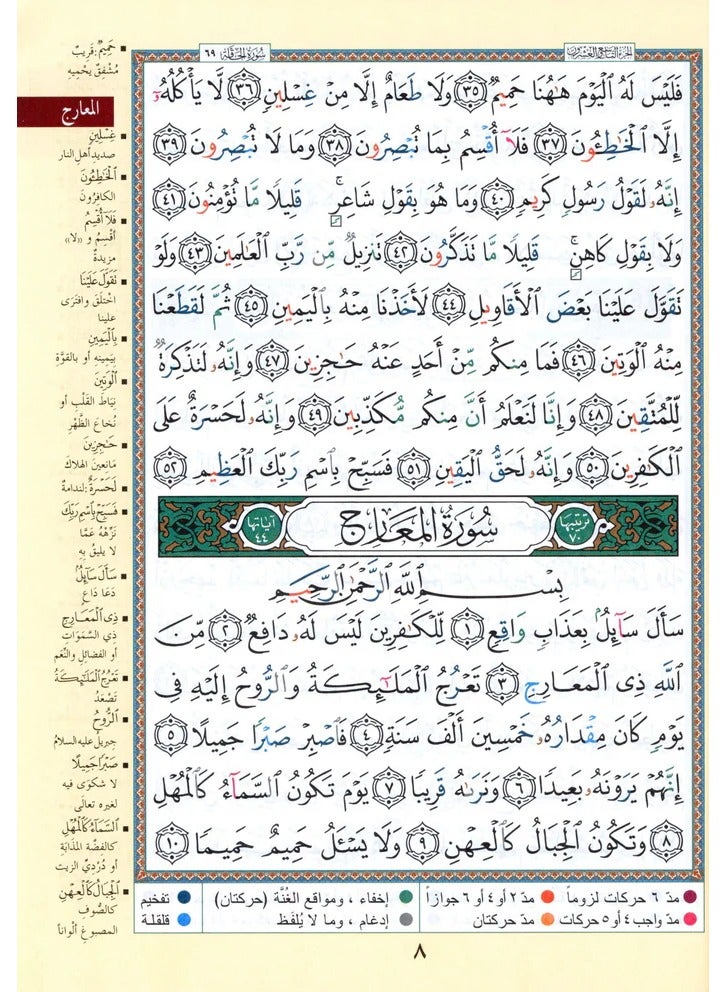 الجزء التاسع والعشرون
سورة الحاقة ٦٩
فَلَيْسَ لَهُ الْيَوْمَ هَٰهُنَا حَمِيمٌ ٣٥ وَلَا طَعَامٌ إِلَّا مِنْ غِسْلِينٍ ٣٦ لَّا يَأْكُلُهُۥٓ
إِلَّا الْخَٰطِـُٔونَ ٣٧ فَلَآ أُقْسِمُ بِمَا تُبْصِرُونَ ٣٨ وَمَا لَا تُبْصِرُونَ ٣٩
إِنَّهُۥ لَقَوْلُ رَسُولٍ كَرِيمٍ ٤٠ وَمَا هُوَ بِقَوْلِ شَاعِرٍ ۚ قَلِيلًا مَّا تُؤْمِنُونَ ٤١
وَلَا بِقَوْلِ كَاهِنٍ ۚ قَلِيلًا مَّا تَذَكَّرُونَ ٤٢ تَنزِيلٌ مِّن رَّبِّ الْعَٰلَمِينَ ٤٣ وَلَوْ
تَقَوَّلَ عَلَيْنَا بَعْضَ الْأَقَاوِيلِ ٤٤ لَأَخَذْنَا مِنْهُ بِالْيَمِينِ ٤٥ ثُمَّ لَقَطَعْنَا
مِنْهُ الْوَتِينَ ٤٦ فَمَا مِنكُم مِّنْ أَحَدٍ عَنْهُ حَٰجِزِينَ ٤٧ وَإِنَّهُۥ لَتَذْكِرَةٌ
لِّلْمُتَّقِينَ ٤٨ وَإِنَّا لَنَعْلَمُ أَنَّ مِنكُم مُّكَذِّبِينَ ٤٩ وَإِنَّهُۥ لَحَسْرَةٌ عَلَى
الْكَٰفِرِينَ ٥٠ وَإِنَّهُۥ لَحَقُّ الْيَقِينِ ٥١ فَسَبِّحْ بِاسْمِ رَبِّكَ الْعَظِيمِ ٥٢
ترتيبها ٧٠ سُورَةُ الْمَعَارِجِ آياتها ٤٤
بِسْمِ اللَّهِ الرَّحْمَٰنِ الرَّحِيمِ
سَأَلَ سَآئِلٌۢ بِعَذَابٍ وَاقِعٍ ١ لِّلْكَٰفِرِينَ لَيْسَ لَهُۥ دَافِعٌ ٢ مِّنَ
اللَّهِ ذِي الْمَعَارِجِ ٣ تَعْرُجُ الْمَلَٰٓئِكَةُ وَالرُّوحُ إِلَيْهِ فِي
يَوْمٍ كَانَ مِقْدَارُهُۥ خَمْسِينَ أَلْفَ سَنَةٍ ٤ فَاصْبِرْ صَبْرًا جَمِيلًا ٥
إِنَّهُمْ يَرَوْنَهُۥ بَعِيدًا ٦ وَنَرَىٰهُ قَرِيبًا ٧ يَوْمَ تَكُونُ السَّمَآءُ كَالْمُهْلِ
٨ وَتَكُونُ الْجِبَالُ كَالْعِهْنِ ٩ وَلَا يَسْـَٔلُ حَمِيمٌ حَمِيمًا ١٠
حَمِيمٌ: قَريبٌ
مُشفِقٌ يحميه
المعارج
غِسْلِينٍ
صديد أهل النار
الْخَٰطِـُٔونَ
الكافِرُونَ
فَلَآ أُقْسِمُ
أقْسِمُ و «لا»
مزيدةٌ
تَقَوَّلَ عَلَيْنَا
اختلَقَ وافترَى
علينا
بِالْيَمِينِ
بيَمينِه أو بالقوَّة
الْوَتِينَ
نِيَاطَ القَلْبِ أو
نُخاعَ الظَّهْرِ
حَٰجِزِينَ
مَانِعينَ الهلاكَ
لَحَسْرَةٌ: لندامةٌ
فَسَبِّحْ بِاسْمِ رَبِّكَ
نَزِّهْهُ عَمَّا
لا يَليقُ بِه
سَأَلَ سَآئِلٌ
دَعَا دَاعٍ
ذِي الْمَعَارِجِ
ذي السَّمَوَاتِ
أو الفضائلِ والنِّعَم
تَعْرُجُ الْمَلَٰٓئِكَةُ
تَصْعَدُ
الرُّوحُ
جبريلُ عليه السلامُ
صَبْرًا جَمِيلًا
لا شكوى فيه
لغيره تعالَى
السَّمَآءُ كَالْمُهْلِ
كالفضّة المذابَةِ
أو دُرْدِيِّ الزيت
الْجِبَالُ كَالْعِهْنِ
كالصُّوفِ
المصبوغِ ألْواناً
مدّ ٦ حركات لزوماً مدّ ٢ أو ٤ أو ٦ جوازاً إخفاء، ومواقع الغُنَّة (حركتان) تفخيم
مدّ واجب ٤ أو ٥ حركات مدّ حركتان إدغام، وما لا يُلفَظ قلقلة
٨